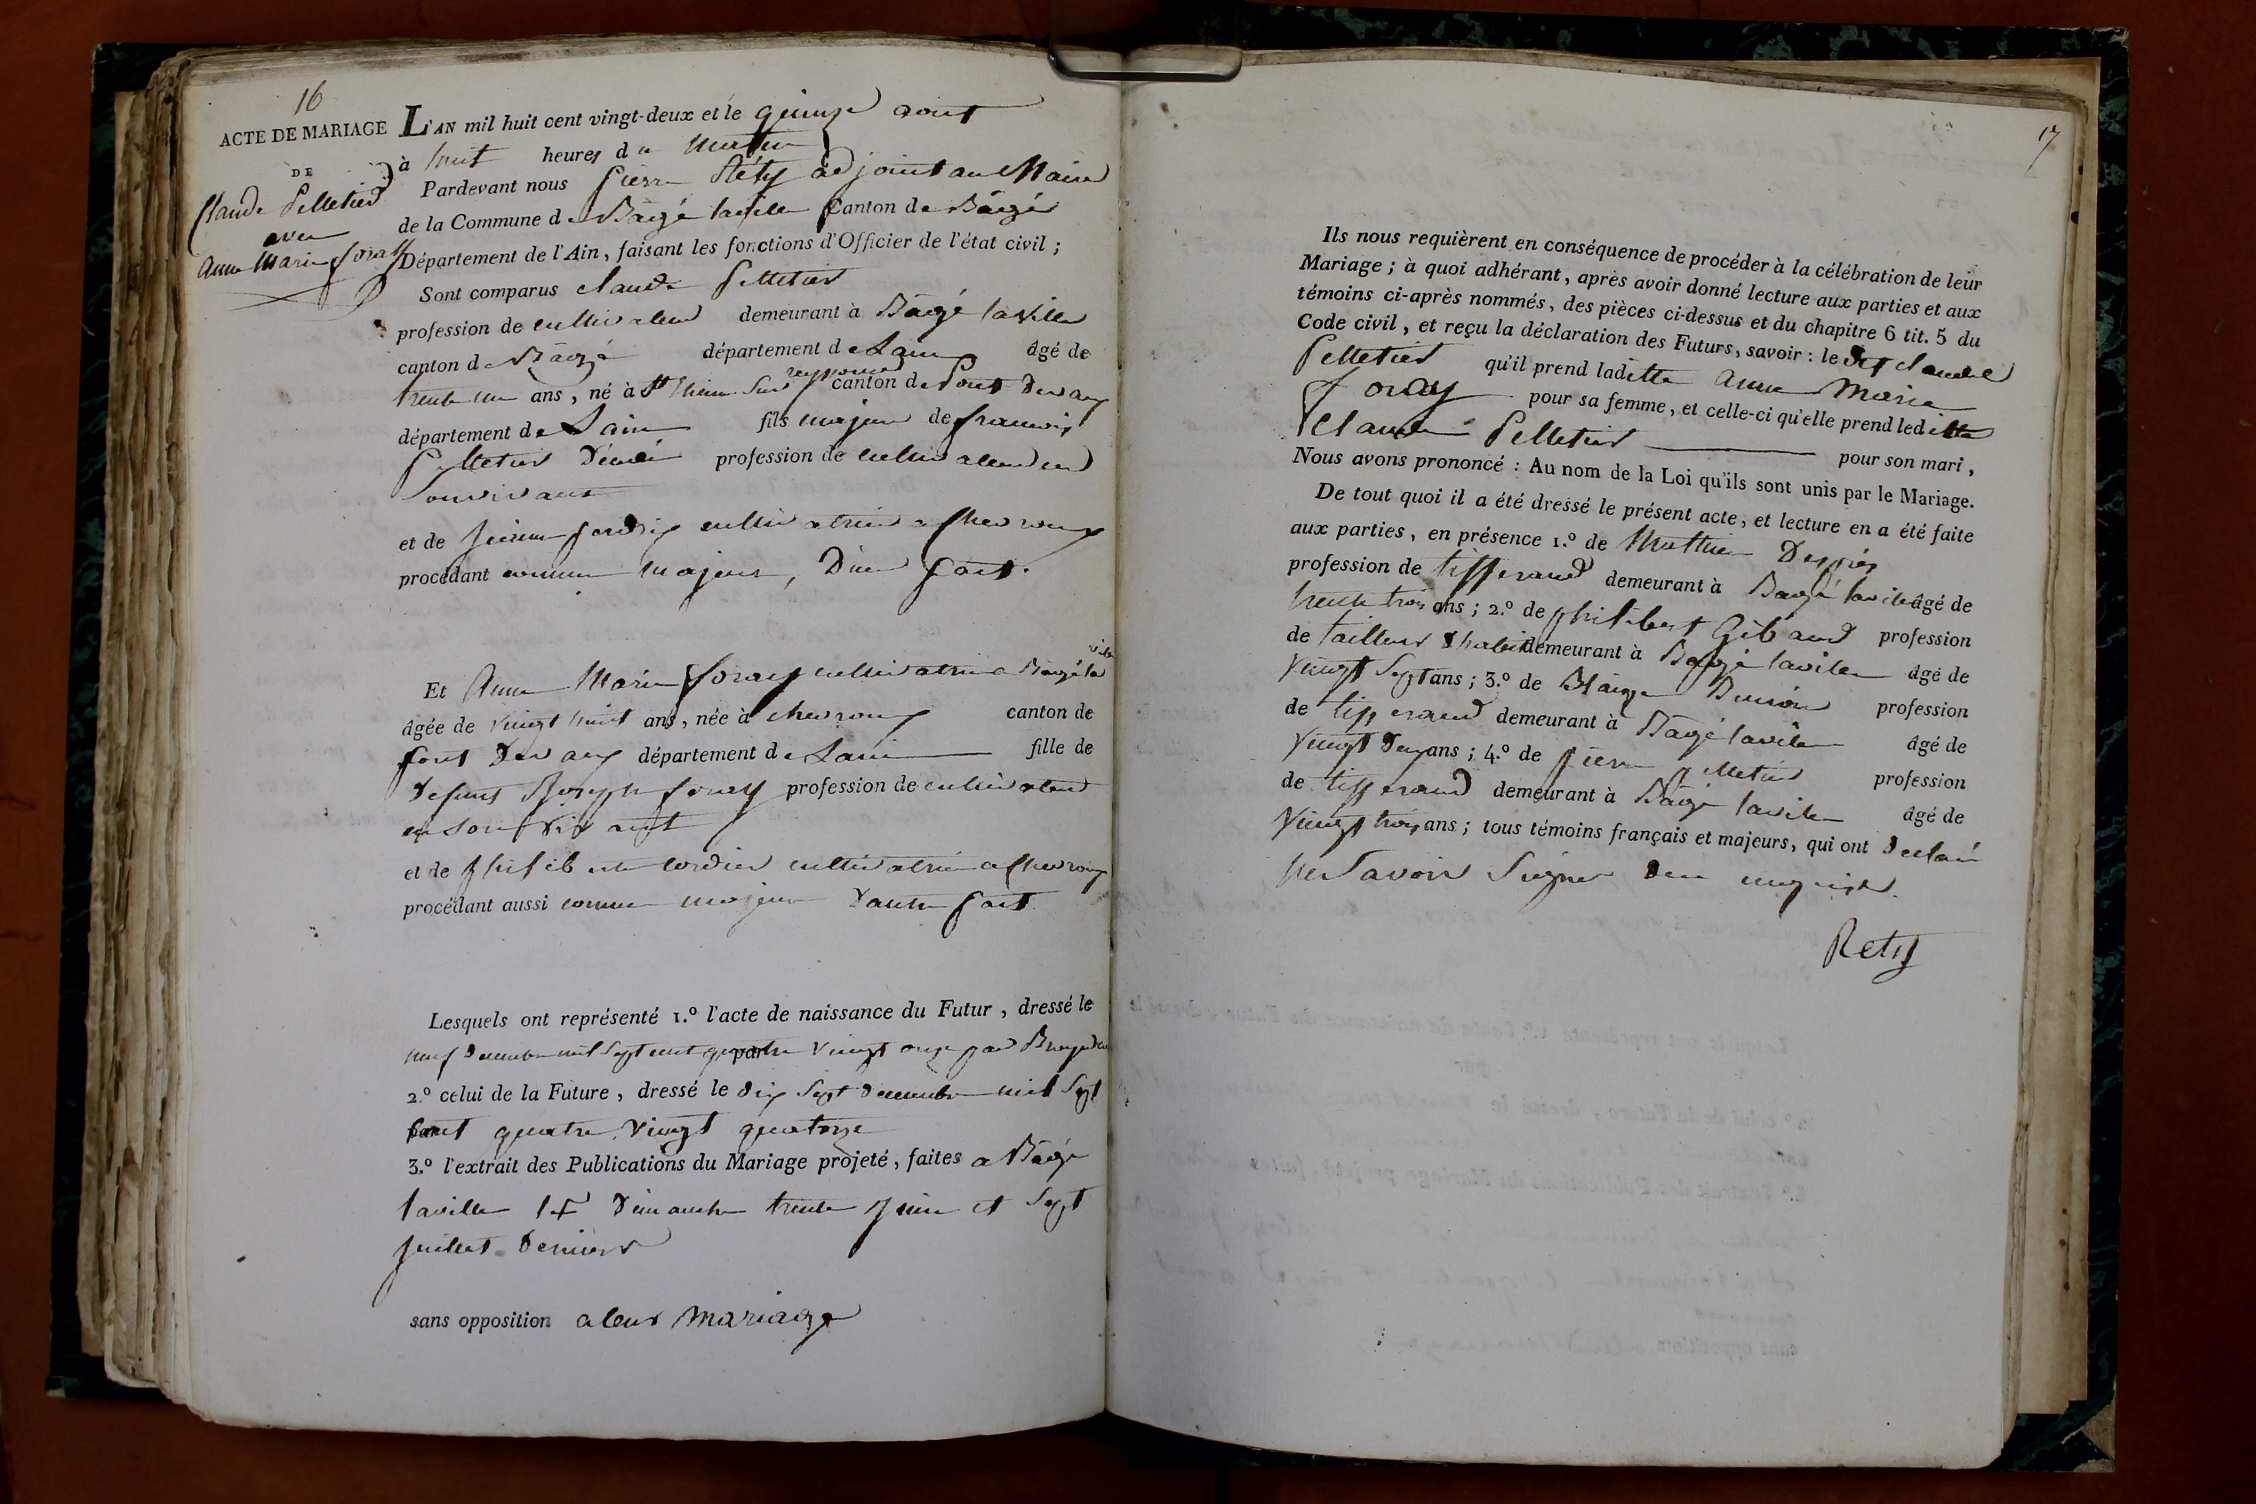 16
ACTE DE MARIAGE
DE
Claude Pelletier
avec
Anne Marie foray
L'AN mil huit cent vingt-deux et le quinze aout
à huit heures du matin
Pardevant nous pierre Réty adjoint au Maire
de la Commune de Bâgé laville Canton de Bâgé
Département de l'Ain, faisant les fonctions d'Officier de l'état civil ;
Sont comparus claude Pelletier
profession de cultivateur demeurant à Bâgé laville
canton de Bâgé département de Lain âgé de
reyssouze
trente un ans, né à St Sur canton de Pont Devaux
département de Lain fils majeur de francois
Pelletier profession de cultivateur
et de cultivatrice a chevroux
procédant comme majeur, Dune part.
ville
Et Anne Marie foray cultivatrice a Bâgé la
âgée de vingt huit ans, née à chevroux canton de
pont Devaux département de Lain fille de
Defunt Joseph foray profession de cultivateur
en son vivant
et de philiberte cordier cultivatrice a chevroux
procédant aussi comme majeure Dautre part
Lesquels ont représenté 1.º l'acte de naissance du Futur, dressé le
neuf Decembre mil sept cent quatre vingt onze par
2.º celui de la Future, dressé le dix sept decembre mil sept
cent quatre vingt quatorze
3.º l'extrait des Publications du Mariage projeté, faites a Bâgé
laville les Dimanche trente juin et sept
juillet derniers
sans opposition a leur mariage
17
Ils nous requièrent en conséquence de procéder à la célébration de leur
Mariage ; à quoi adhérant, après avoir donné lecture aux parties et aux
témoins ci-après nommés, des pièces ci-dessus et du chapitre 6 tit. 5 du
Code civil, et reçu la déclaration des Futurs, savoir : le dit claude
Pelletier qu'il prend laditte anne Marie
foray pour sa femme, et celle-ci qu'elle prend leditte
Claude Pelletier pour son mari,
Nous avons prononcé : Au nom de la Loi qu'ils sont unis par le Mariage.
De tout quoi il a été dressé le présent acte, et lecture en a été faite
aux parties, en présence 1.º de Mathieu
profession de tisserand demeurant à Bâgé laville âgé de
trente trois ans ; 2.º de philibert Gibaud profession
de tailleur Dhabit demeurant à Bâgé laville âgé de
vingt sept ans ; 3.º de Blaize Buiron profession
de tisserand demeurant à Bâgé laville âgé de
vingt deux ans ; 4.º de pierre pelletier profession
de tisserand demeurant à Bâgé laville âgé de
vingt trois ans ; tous témoins français et majeurs, qui ont declaré
ne savoir signer
Rety